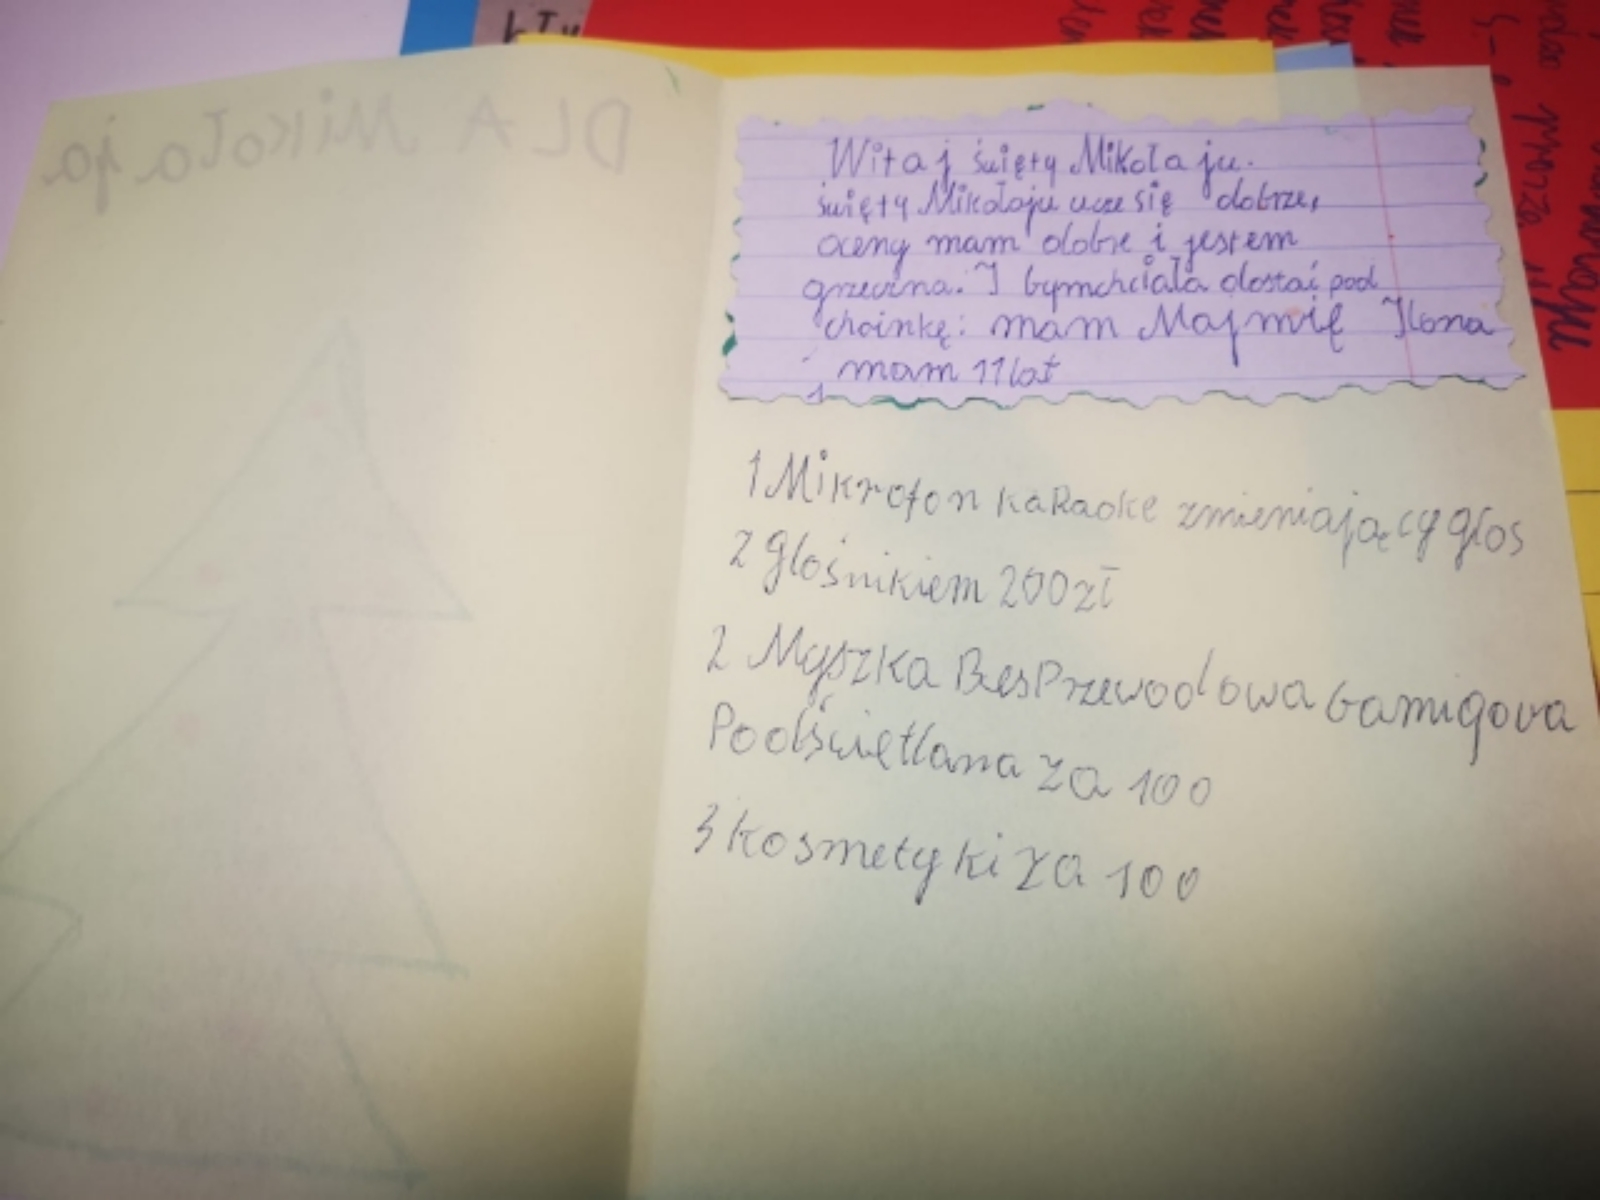 DLA Mikołaja
Witaj święty Mikołaju.
święty Mikołaju ucze się dobrze,
oceny mam dobre i jestem
grzeczna. I bymchciała dostać pod
choinkę: mam Maj mię Ilona
mam 11 lat
1 Mikrofon kaRaoke zmieniający głos
z głośnikiem 200zł
2 Myszka BesPrzewodowa Gamigova
Podświetlana za 100
3 kosmetyki za 100